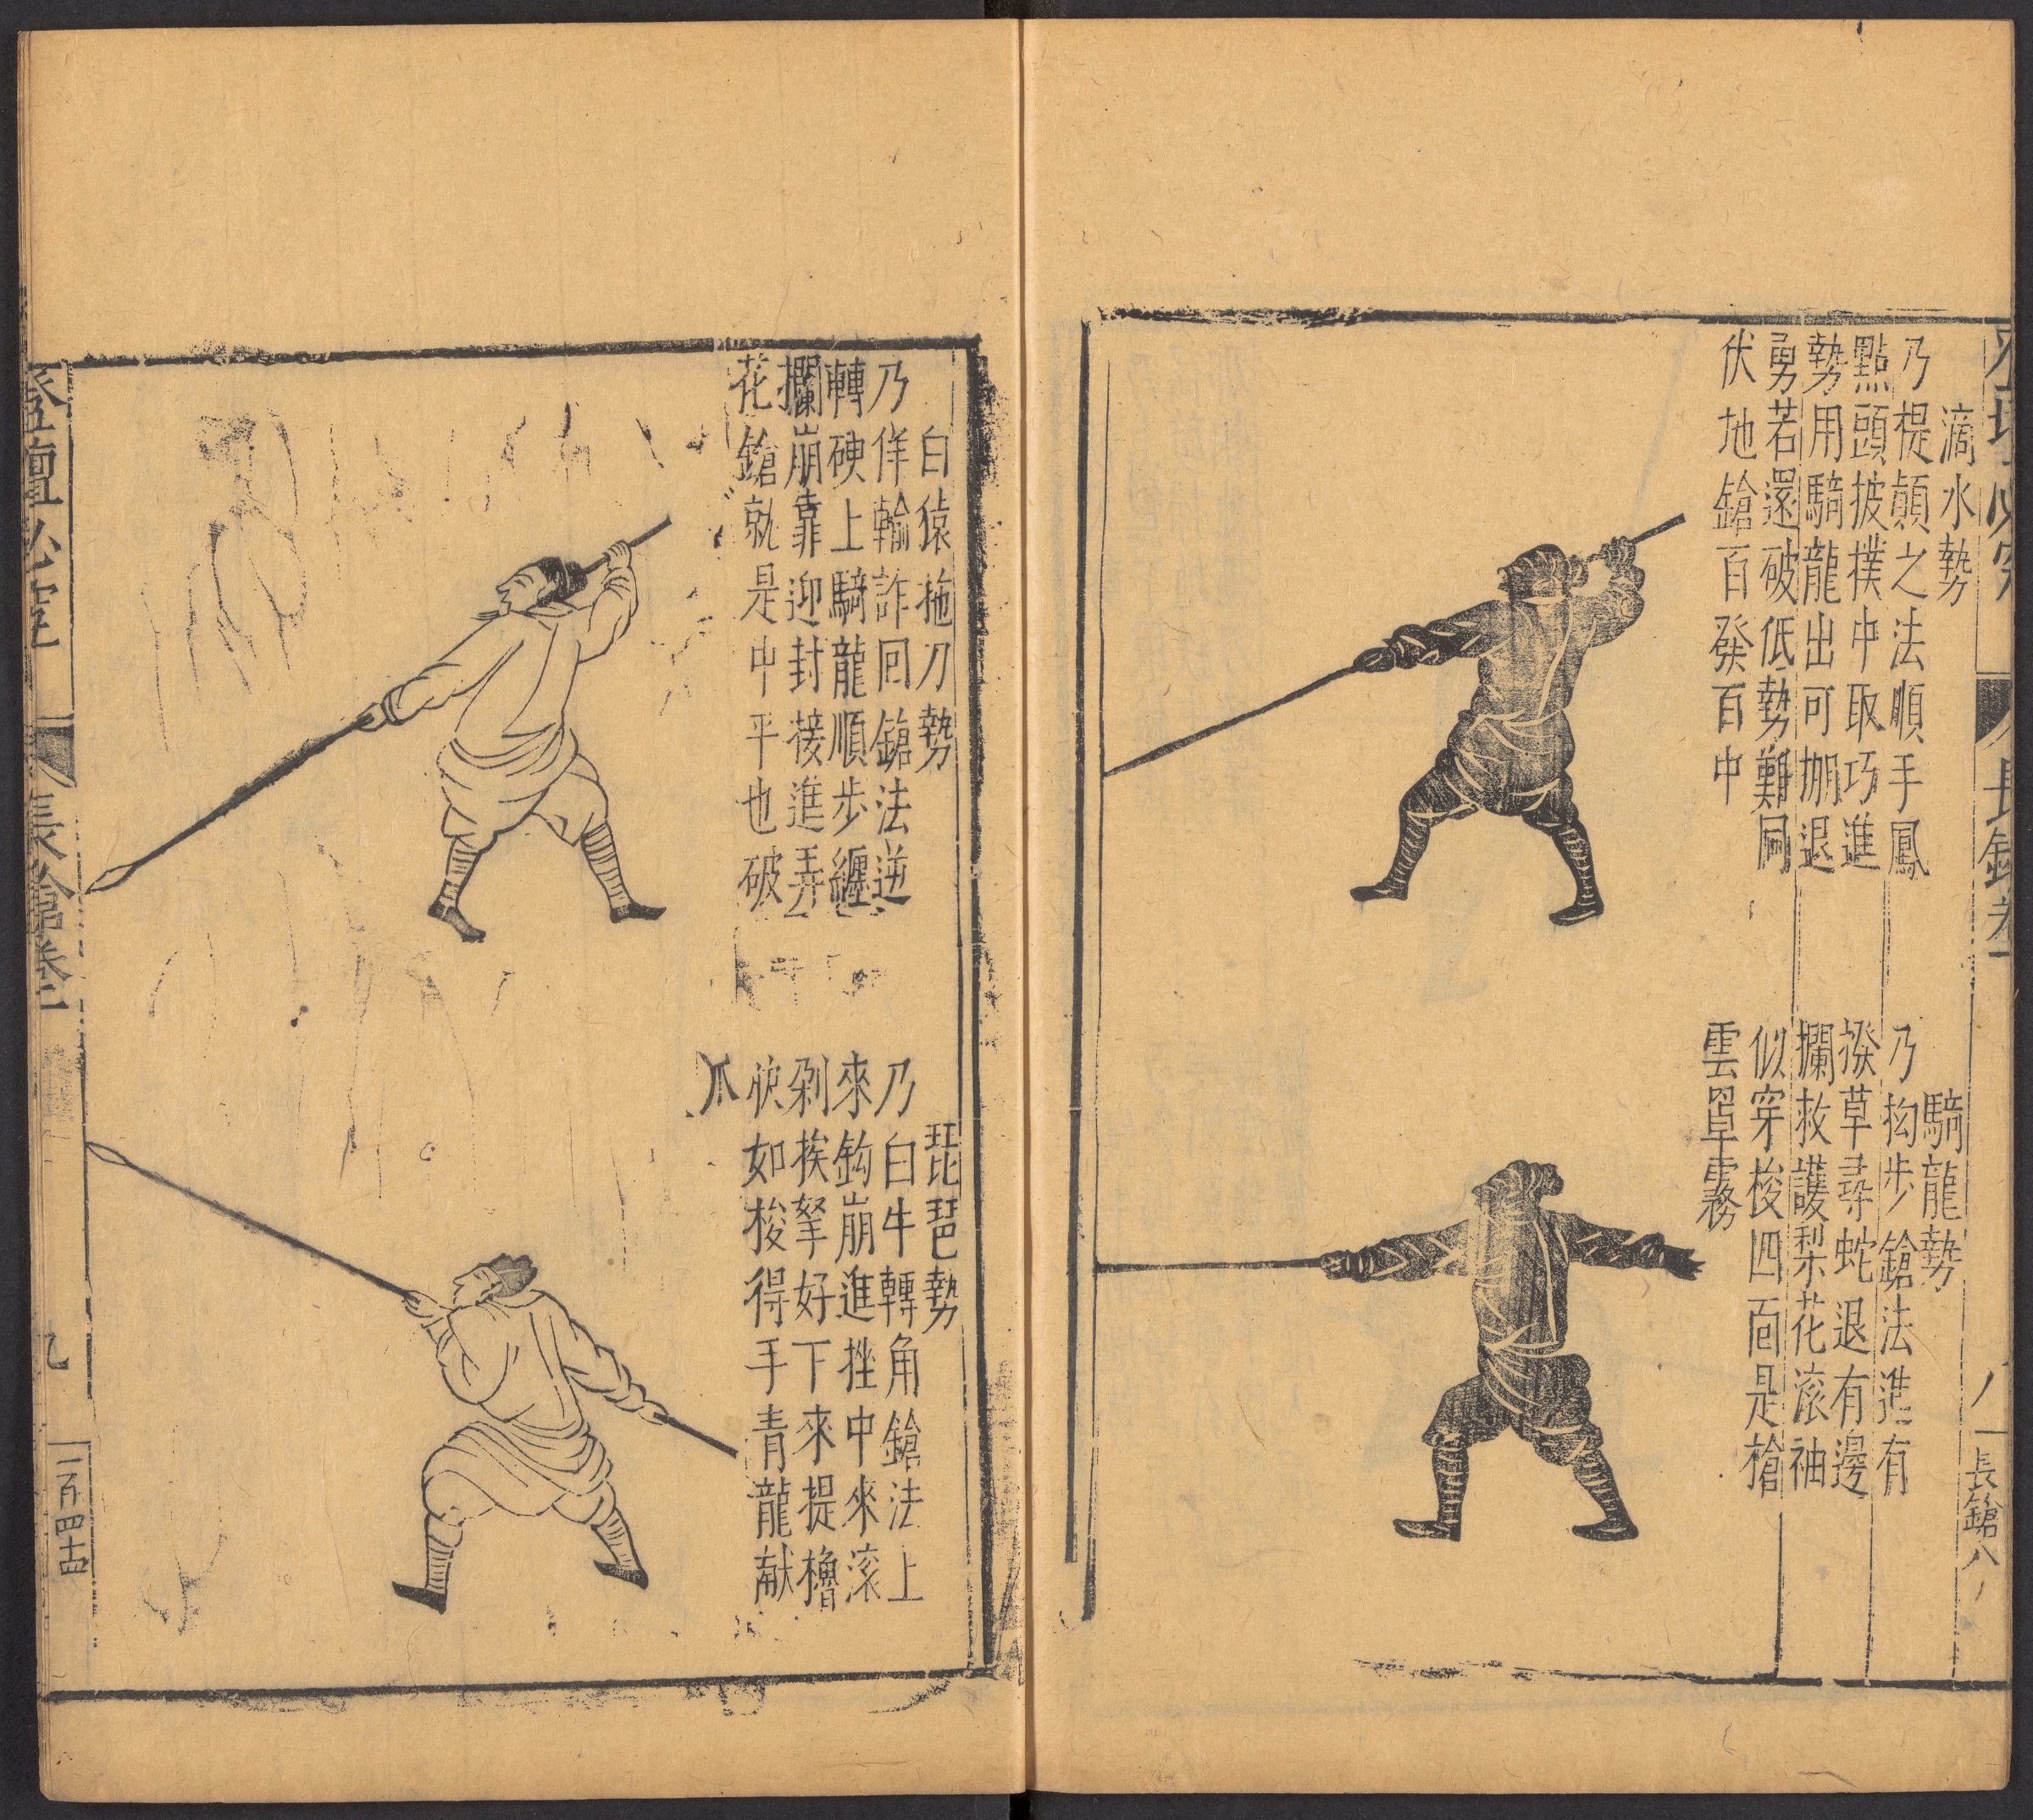 滴水勢
乃提顛之法順手鳳
點頭披撲中取巧進
勢用騎龍出可掤退
勇若還破低勢難同
伏地鎗百發百中
騎龍勢
乃抝步鎗法進有
撥草尋蛇退有邊
攔救護梨花滚袖
似穿梭四面是槍
雲罩霧
長鎗
八
長鎗八
白猿拖刀勢
乃佯輸詐回鎗法逆
轉硬上騎龍順步纏
攔崩靠迎封接進弄
花鎗就是中平也破
琵琶勢
乃白牛轉角鎗法上
來鈎崩進挫中來滚
剁挨拏好下來提櫓
快如梭得手青龍献
爪
登壇必究
長鎗卷
九
一百四十四